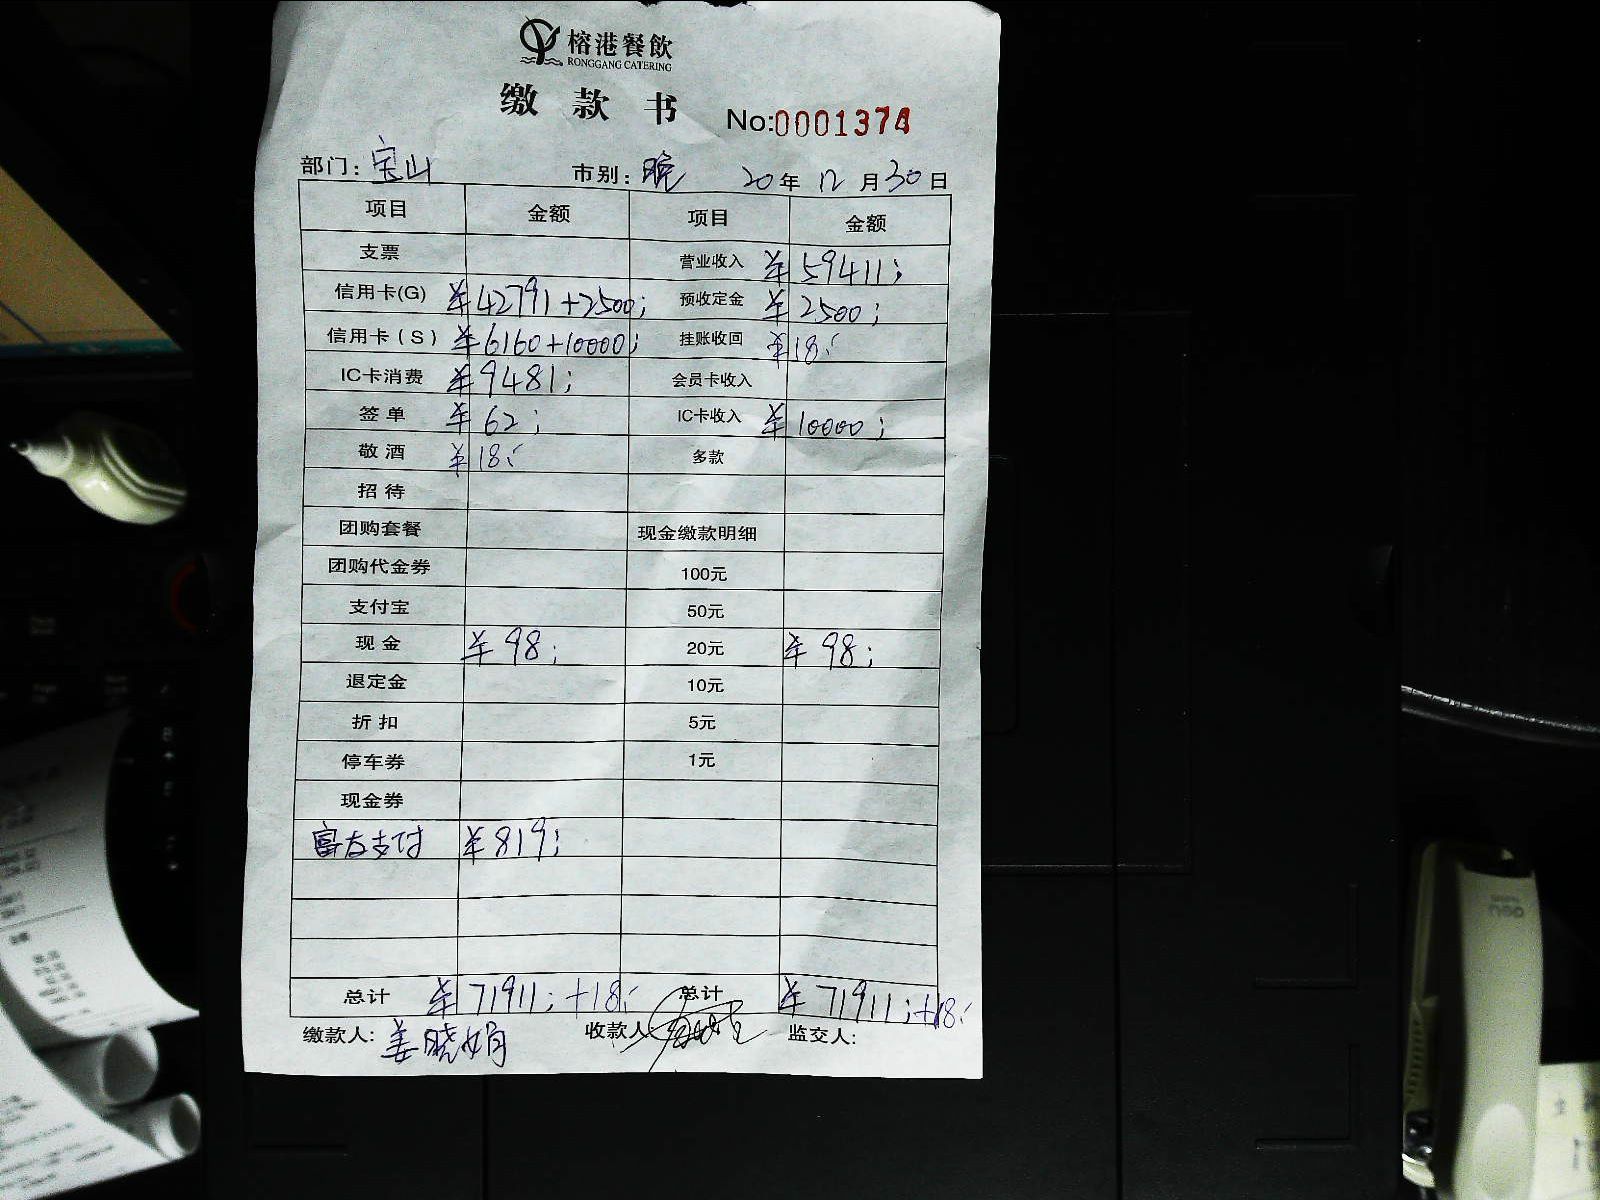 榕港餐飲
RONGGANG CATERING
缴款书
No:0001374
部门：宝山 市别：晚 20年12月30日
项目 金额 项目 金额
支票 营业收入 ¥59411;
信用卡(G) ¥42791+2500; 预收定金 ¥2500;
信用卡(S) ¥6160+10000; 挂账收回 ¥18;
IC卡消费 ¥9481; 会员卡收入
签单 ¥62; IC卡收入 ¥10000;
敬酒 ¥18; 多款
招待
团购套餐 现金缴款明细
团购代金券 100元
支付宝 50元
现金 ¥98; 20元 ¥98;
退定金 10元
折扣 5元
停车券 1元
现金券
富友支付 ¥819;
总计 ¥71911;+18; 总计 ¥71911;+18;
缴款人：姜晓娟 收款人： 监交人：